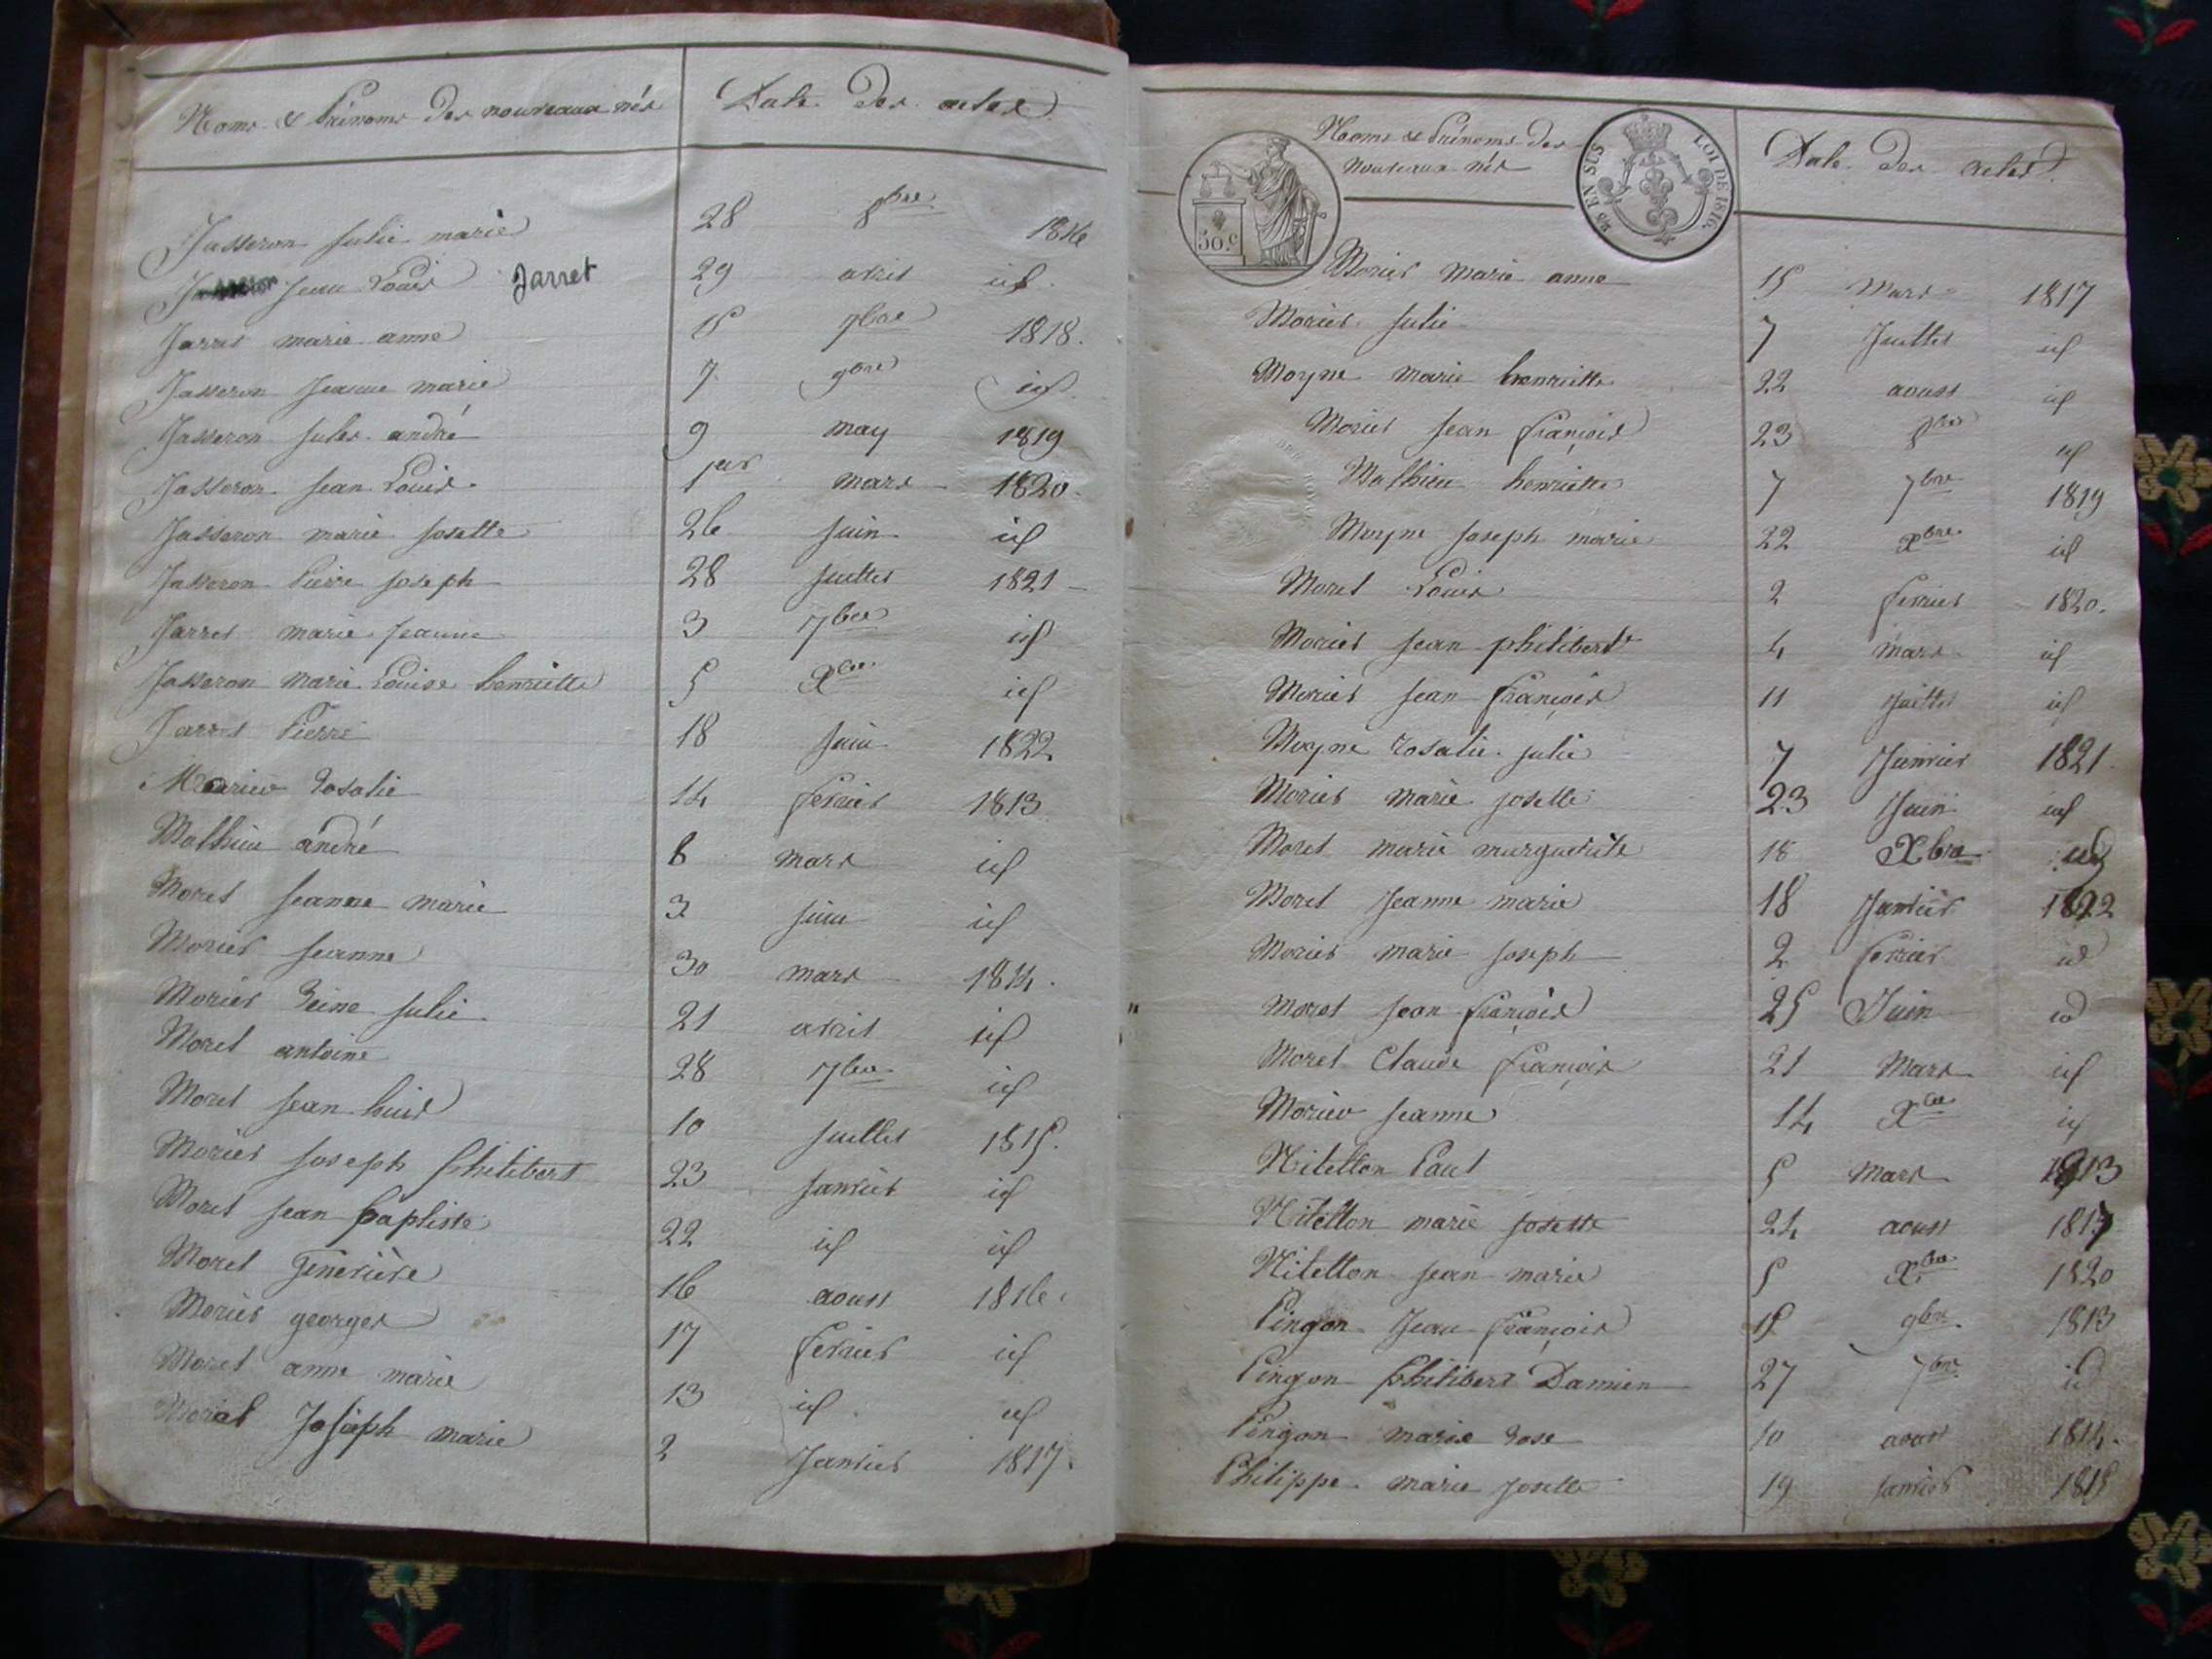 Noms & Prénoms des nouveaux nés Date des actes
Jasseron Julie marie 28 8bre 1816
Jean Louis Jarret 29 avril id
Jarret marie anne 15 7bre 1818.
Jasseron Jeanne marie 7 9bre id
Jasseron Jules andré 9 may 1819
Jasseron Jean Louis 1er mars 1820.
Jasseron marie Josette 26 Juin id
Jasseron Pierre Joseph 28 Juillet 1821
Jarret marie Jeanne 3 7bre id
Jasseron marie Louise henriette 5 Xbre id
Jarret Pierre 18 Juin 1822
Morier Rosalie 14 février 1813
Mathieu andré 6 mars id
Moret Jeanne marie 3 Juin id
Morier Jeanne 30 mars 1814.
Morier Reine Julie 21 avril id
Moret antoine 28 7bre id
Moret Jean Louis 10 Juillet 1815.
Morier Joseph Philibert 23 Janvier id
Moret Jean baptiste 22 id id
Moret Geneviève 16 aoust 1816.
Morier georges 17 février id
Moret anne marie 13 id id
Joseph marie 2 Janvier 1817.
Noms & Prénoms des
nouveaux nés Date des actes
50 c.
EN SUS LOI DE 1816.
Morier marie anne 15 Mars 1817
Morier Julie 7 Juillet id
Moyne marie henriette 22 aoust id
Morier Jean françois 23 8bre id
Mathieu henriette 7 7bre 1819
Moyne Joseph marie 22 Xbre id
Moret Louis 2 février 1820.
Morier Jean philibert 4 mars id
Morier Jean françois 11 Juillet id
Moyne rosalie Julie 7 Janvier 1821
Morier marie Josette 23 Juin id
Moret marie marguerite 18 Xbre id
Moret Jeanne marie 18 Janvier 1822
Morier marie Joseph 2 février id
Moret Jean françois 25 Juin id
Moret Claude françois 21 Mars id
Morier Jeanne 14 Xbre id
Nitellon Paul 5 Mars 1813
Nitellon marie Josette 24 aoust 1817
Nitellon Jean marie 5 Xbre 1820
Pingon Jean françois 15 9bre 1813
Pingon Philibert Damien 27 7bre id
Pingon marie Rose 10 aoust 1814.
Philippe marie Josette 19 Janvier 1815